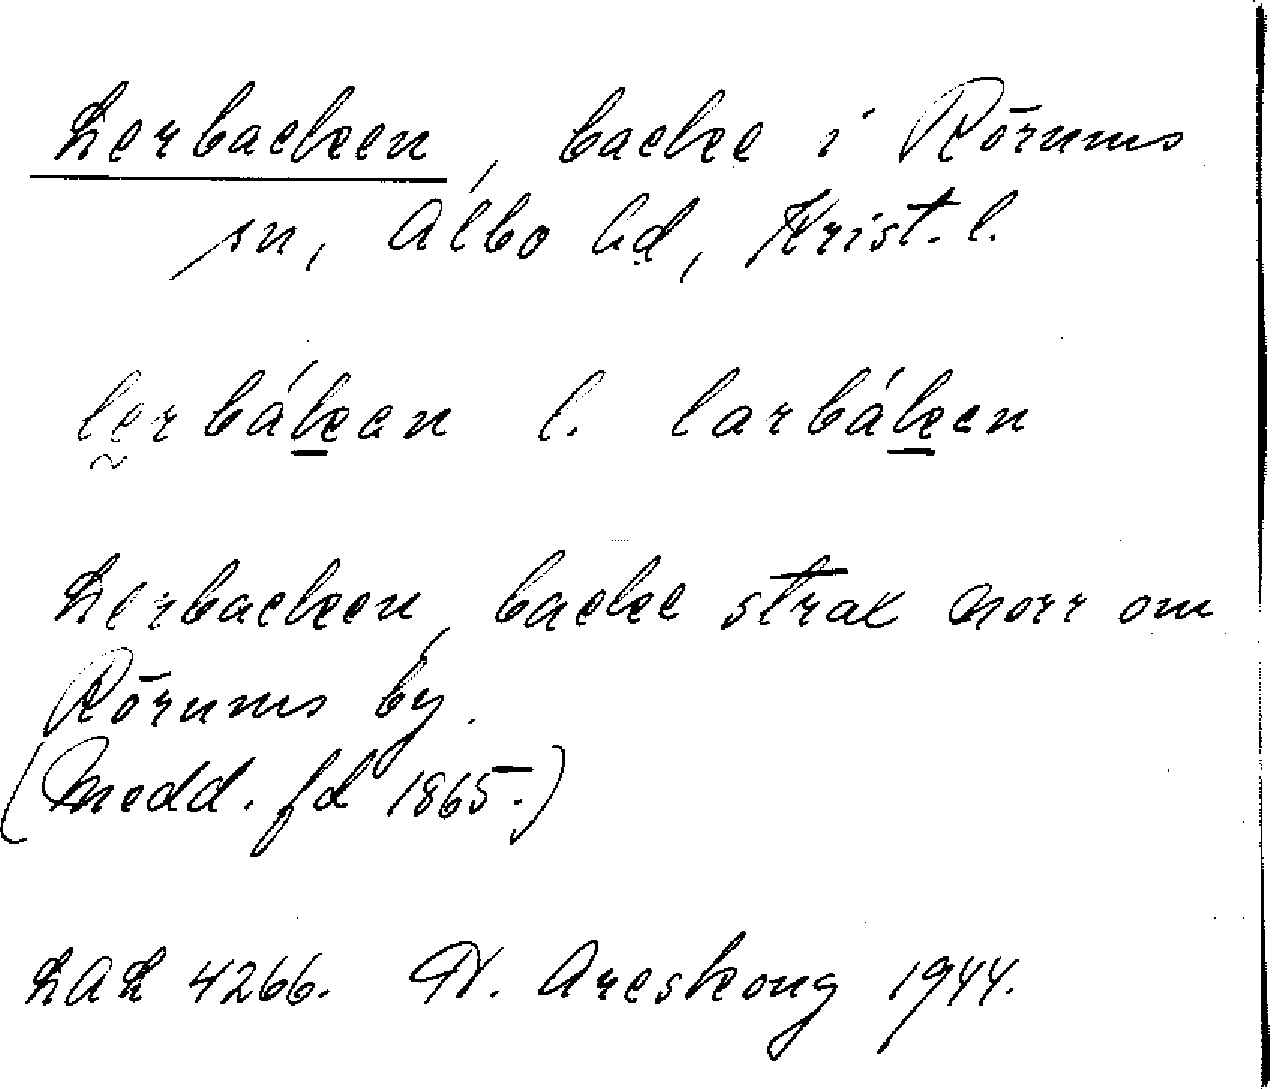 Lerbacken, backe i Rörums
sn, Albo hd, Krist. l.
lerbáken l. larbáken
Lerbacken, backe strax norr om
Rörums by.
(Medd. fd 1865.)
LAL 4266. N. Areskoug 1944.